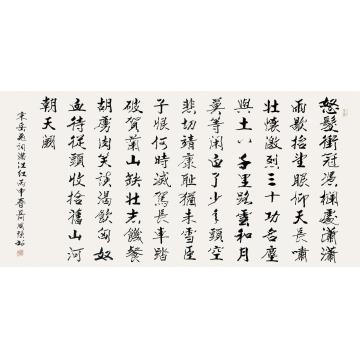 怒髮衝冠憑欄處瀟瀟
雨歇抬望眼仰天長嘯
壯懷激烈三十功名塵
與土八千里路雲和月
莫等閑白了少年頭空
悲切靖康恥猶未雪臣
子恨何時滅駕長車踏
破賀蘭山缺壯志饑餐
胡虜肉笑談渴飲匈奴
血待從頭收拾舊山河
朝天闕
宋岳飛詞滿江紅丙申春